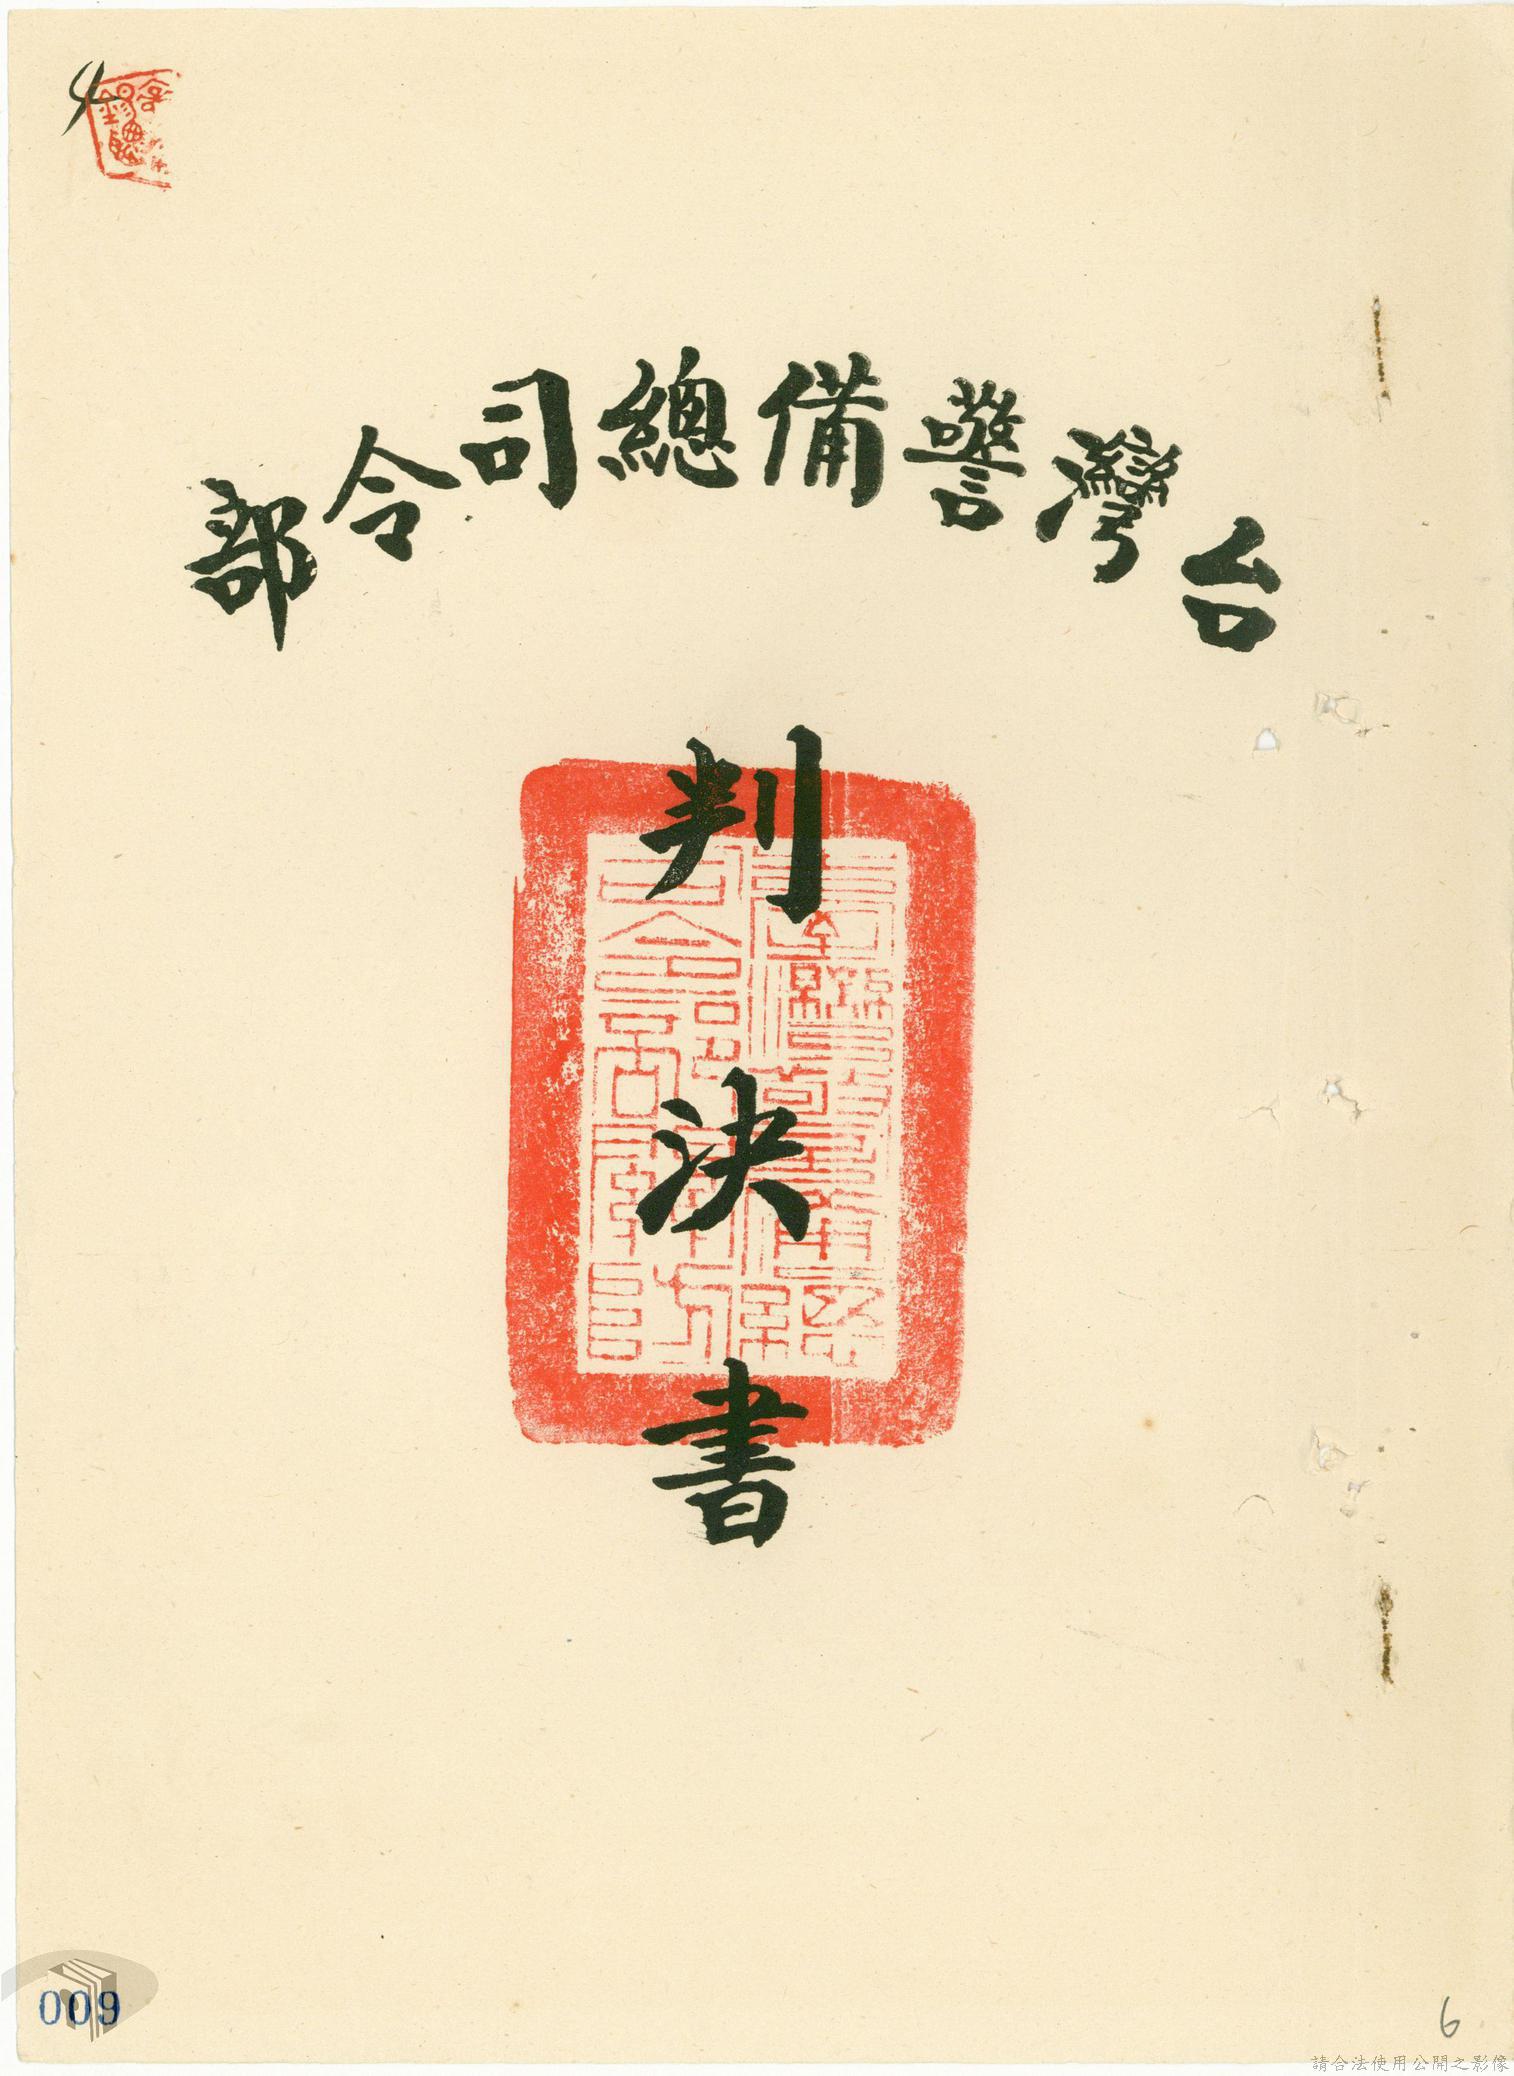 台灣警備總司令部
判
決
書
009
6
請合法使用公開之影像